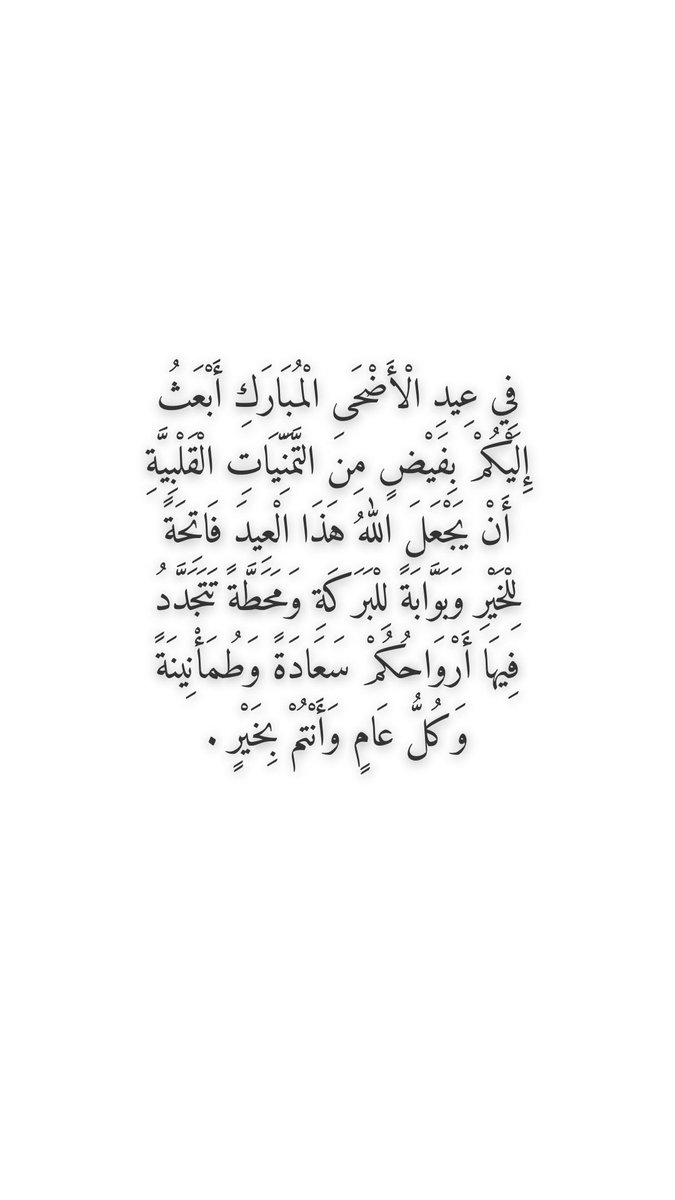 فِي عِيدِ الْأَضْحَى الْمُبَارَكِ أَبْعَثُ
إِلَيْكُمْ بِفَيْضٍ مِنَ التَّمَنِّيَاتِ الْقَلْبِيَّةِ
أَنْ يَجْعَلَ اللهُ هَذَا الْعِيدَ فَاتِحَةً
لِلْخَيْرِ وَبَوَّابَةً لِلْبَرَكَةِ وَمَحَطَّةً تَتَجَدَّدُ
فِيهَا أَرْوَاحُكُمْ سَعَادَةً وَطُمَأْنِينَةً
وَكُلُّ عَامٍ وَأَنْتُمْ بِخَيْرٍ .